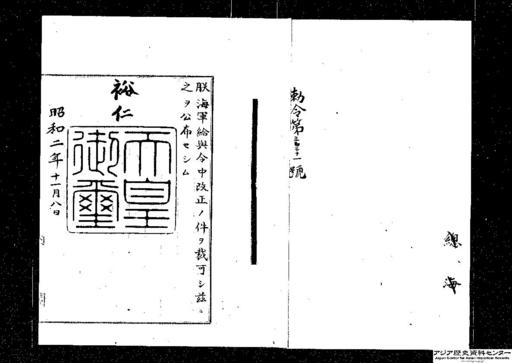 勅令第三三一號
總、海
朕海軍給與令中改正ノ件ヲ裁可シ茲ニ
之ヲ公布セシム
裕仁
天皇御璽
昭和二年十一月八日
アジア歴史資料センター
Japan Center for Asian Historical Records